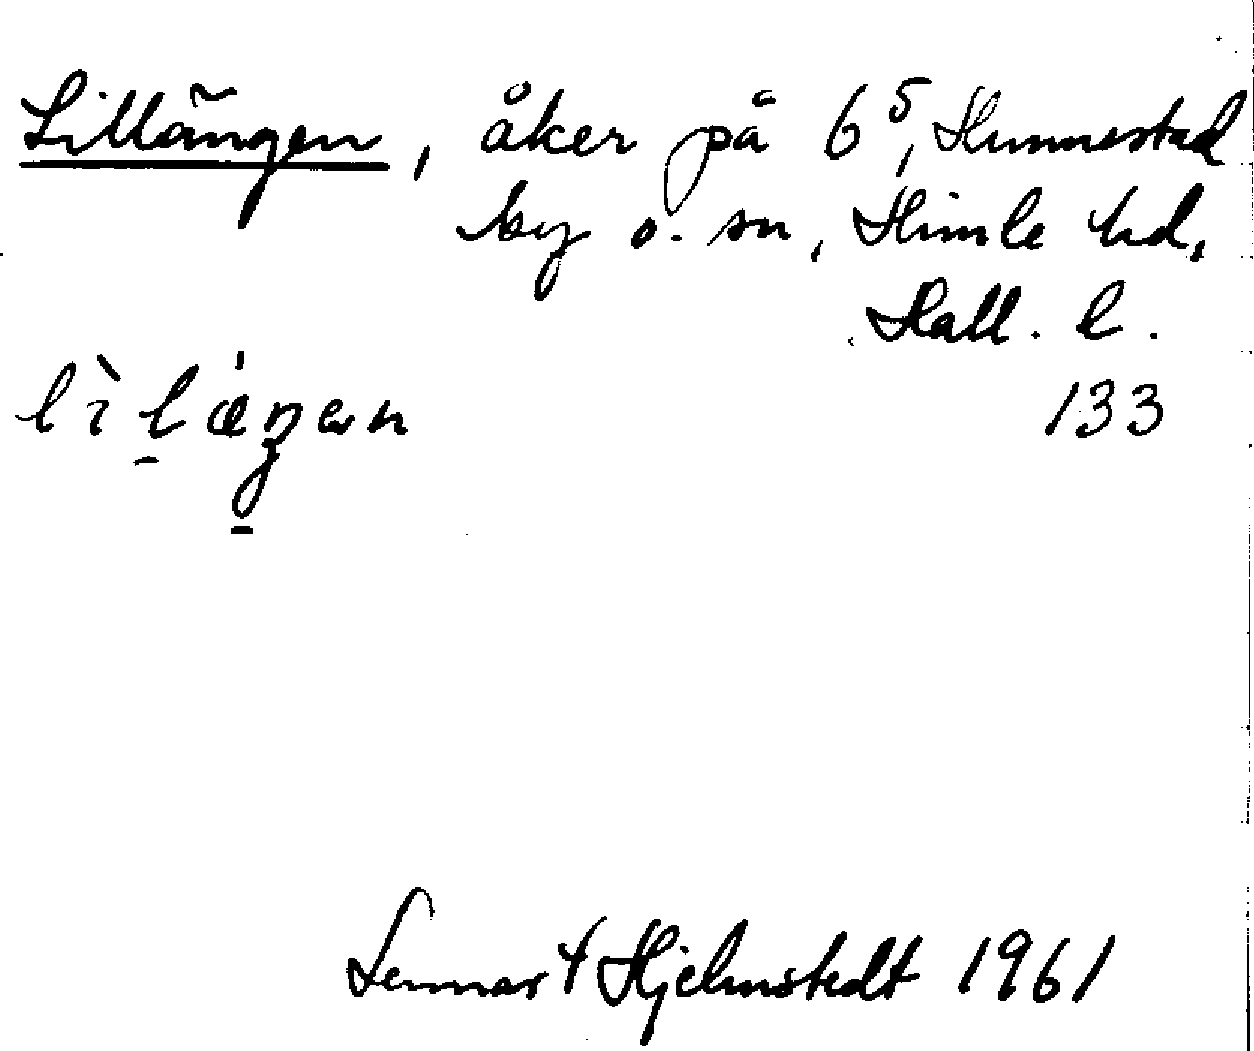 Lillängen, åker på 6⁵, Hunnestad
by o. sn, Himle hd,
Hall. l.
133
Lennart Hjelmstedt 1961